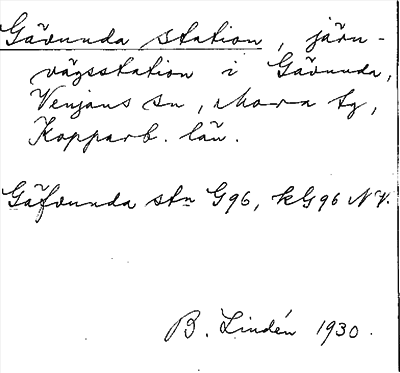 Gävunda station, järn-
vägsstation i Gävunda,
Venjans sn, Mora tg,
Kopparb. län.
Gäfvunda stn G96, kG96 NV.
B. Lindén 1930.